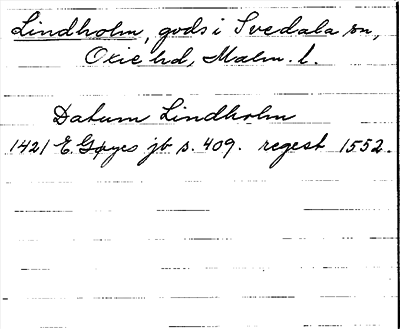 Lindholm, gods i Svedala sn,
Oxie hd, Malm. l.
Datum Lindholm
1421 E. Gøyes jb s. 409. regest 1552.